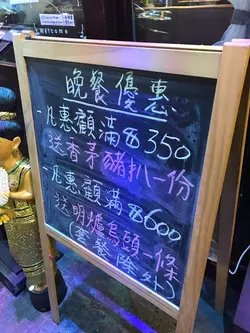 Welcome
晚餐優惠
-凡惠顧滿$350
送香茅豬扒一份
-凡惠顧滿$600
送明爐烏頭一條
(套餐除外)